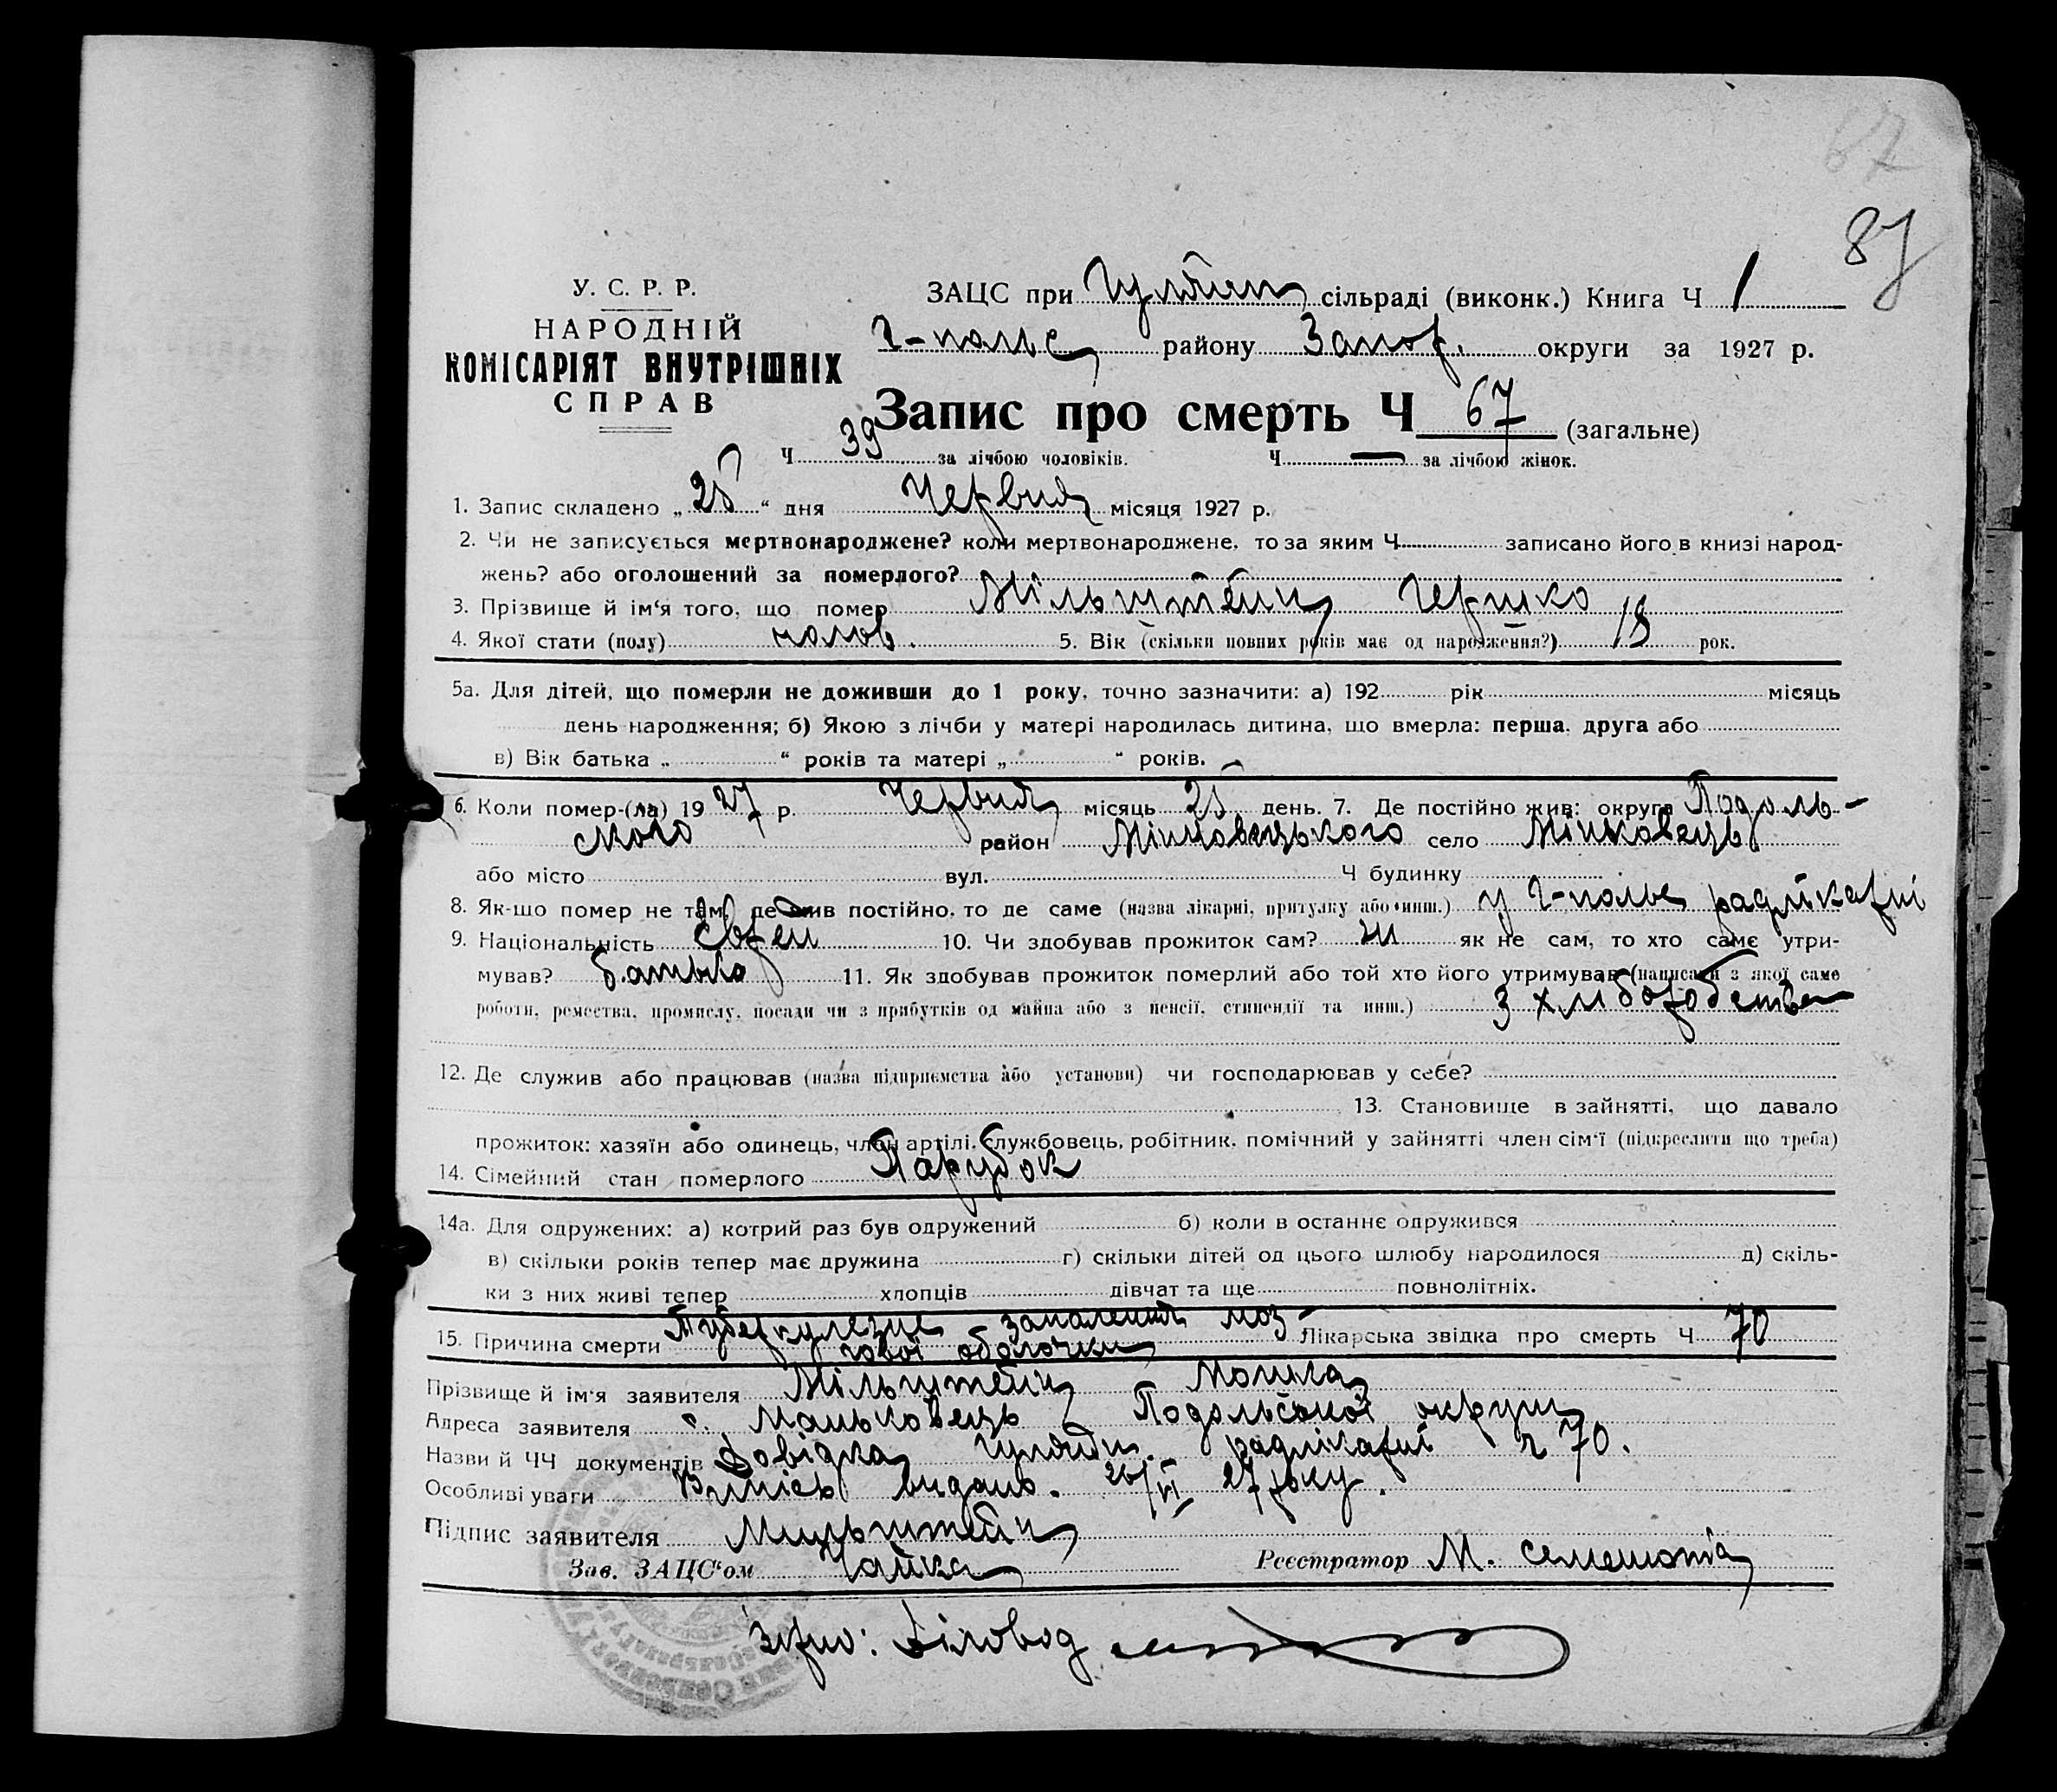 67
87
У. С. Р. Р.
НАРОДНІЙ
КОМІСАРІЯТ ВНУТРІШНІХ
СПРАВ
ЗАЦС при Гуляйп сільраді (виконк.) Книга Ч 1
Г-польс району Запор. округи за 1927 р.
Запис про смерть Ч 67 (загальне)
Ч 39 за лічбою чоловіків. Ч — за лічбою жінок.
1. Запис складено „25“ дня Червня місяця 1927 р.
2. Чи не записується мертвонароджене? коли мертвонароджене, то за яким Ч записано його в книзі народ-
жень? або оголошений за померлого?
3. Прізвище й ім'я того, що помер Мільштейн Гершко
4. Якої стати (полу) чолов. 5. Вік (скільки повних років має од народження?) 18 рок.
5а. Для дітей, що померли не доживши до 1 року, точно зазначити: а) 192 рік місяць
день народження; б) Якою з лічби у матері народилась дитина, що вмерла: перша, друга або
в) Вік батька „ “ років та матері „ “ років.
6. Коли помер-(ла) 1927 р. Червня місяць 25 день. 7. Де постійно жив: округа Подоль-
ського район Міньковецького село Міньковець
або місто вул. Ч будинку
8. Як-що помер не там, де жив постійно, то де саме (назва лікарні, притулку або инш.) у Г-польс радлікарні
9. Національність Єврей 10. Чи здобував прожиток сам? ні як не сам, то хто саме утри-
мував? батько 11. Як здобував прожиток померлий або той хто його утримував (написати з якої саме
роботи, ремества, промислу, посади чи з прибутків од майна або з пенсії, стипендії та инш.) з хліборобства
12. Де служив або працював (назва підприємства або установи) чи господарював у себе?
13. Становище в зайнятті, що давало
прожиток: хазяїн або одинець, член артілі, службовець, робітник, помічний у зайнятті член сім'ї (підкреслити що треба)
14. Сімейний стан померлого Парубок
14а. Для одружених: а) котрий раз був одружений б) коли в останнє одружився
в) скільки років тепер має дружина г) скільки дітей од цього шлюбу народилося д) скіль-
ки з них живі тепер хлопців дівчат та ще повнолітніх.
15. Причина смерти Туберкулезне запалення моз-
гової оболочки Лікарська звідка про смерть Ч 70
Прізвище й ім'я заявителя Мільштейн Мошка
Адреса заявителя с. Маньковець Подольської округи
Назви й ЧЧ документів Довідка Гуляйп. радлікарні ч 70.
Особливі уваги Випісь видано. 26/VI 27 року.
Підпис заявителя Мильштейн
Зав. ЗАЦС'ом Чайка Реєстратор М. Семешота
Згірно: Діловод